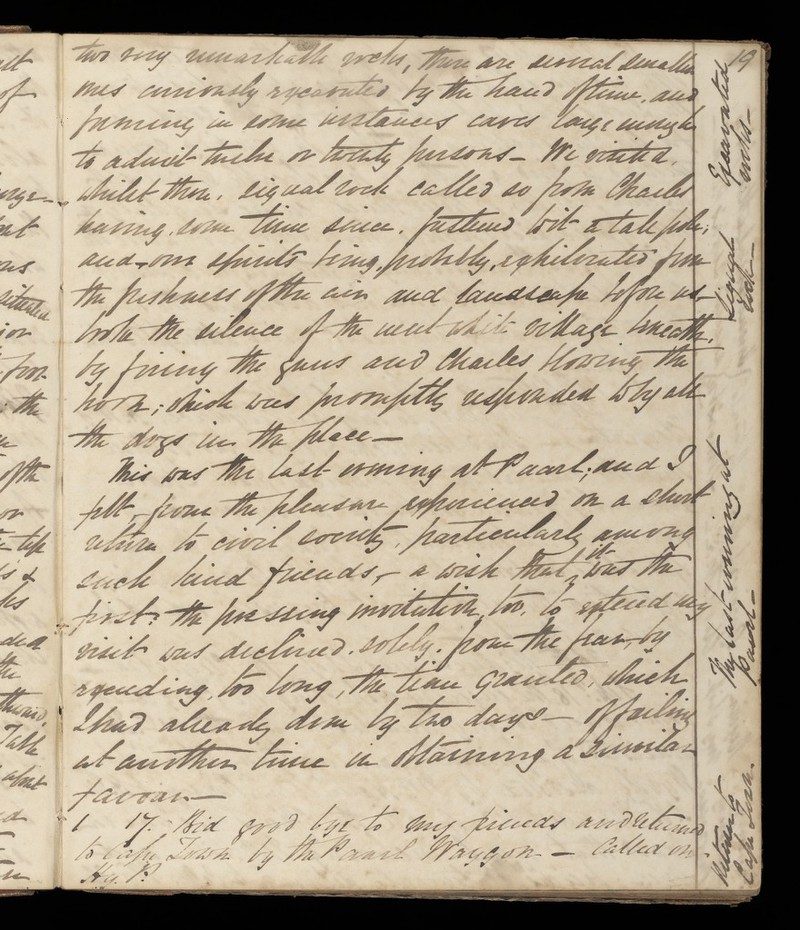 19
two very remarkable rocks, there are several smaller
ones curiously excavated by the hand of time, and
forming in some instances caves large enough
to admit twelve or twenty persons - We visited,
whilst there, signal rock called so from Charles
having, some time since, fastened to it a tall pole;
and, our spirits being, probably, exhilerated from
the freshness of the air and landscape before us -
broke the silence of the neat white village beneath,
by firing the guns and Charles blowing the
horn; which was promptly responded to by all
the dogs in the place -
This was the last evening at Paarl; and I
felt, from the pleasure experienced on a short
return to civil society, particularly among
such kind friends, - a wish that it was the
first: the pressing invitation, too, to extend my
visit was declined, solely, from the fear, by
exceeding, too long, the time granted, which
I had already done by two days - of failing
at another time in obtaining a similar
favour -
17. Bid good bye to my friends and returned
to Cape Town by the Paarl Waggon - Called on
Excavated
rocks -
Signal
Rock -
The last evening at
Paarl -
Returns to
Cape Town.